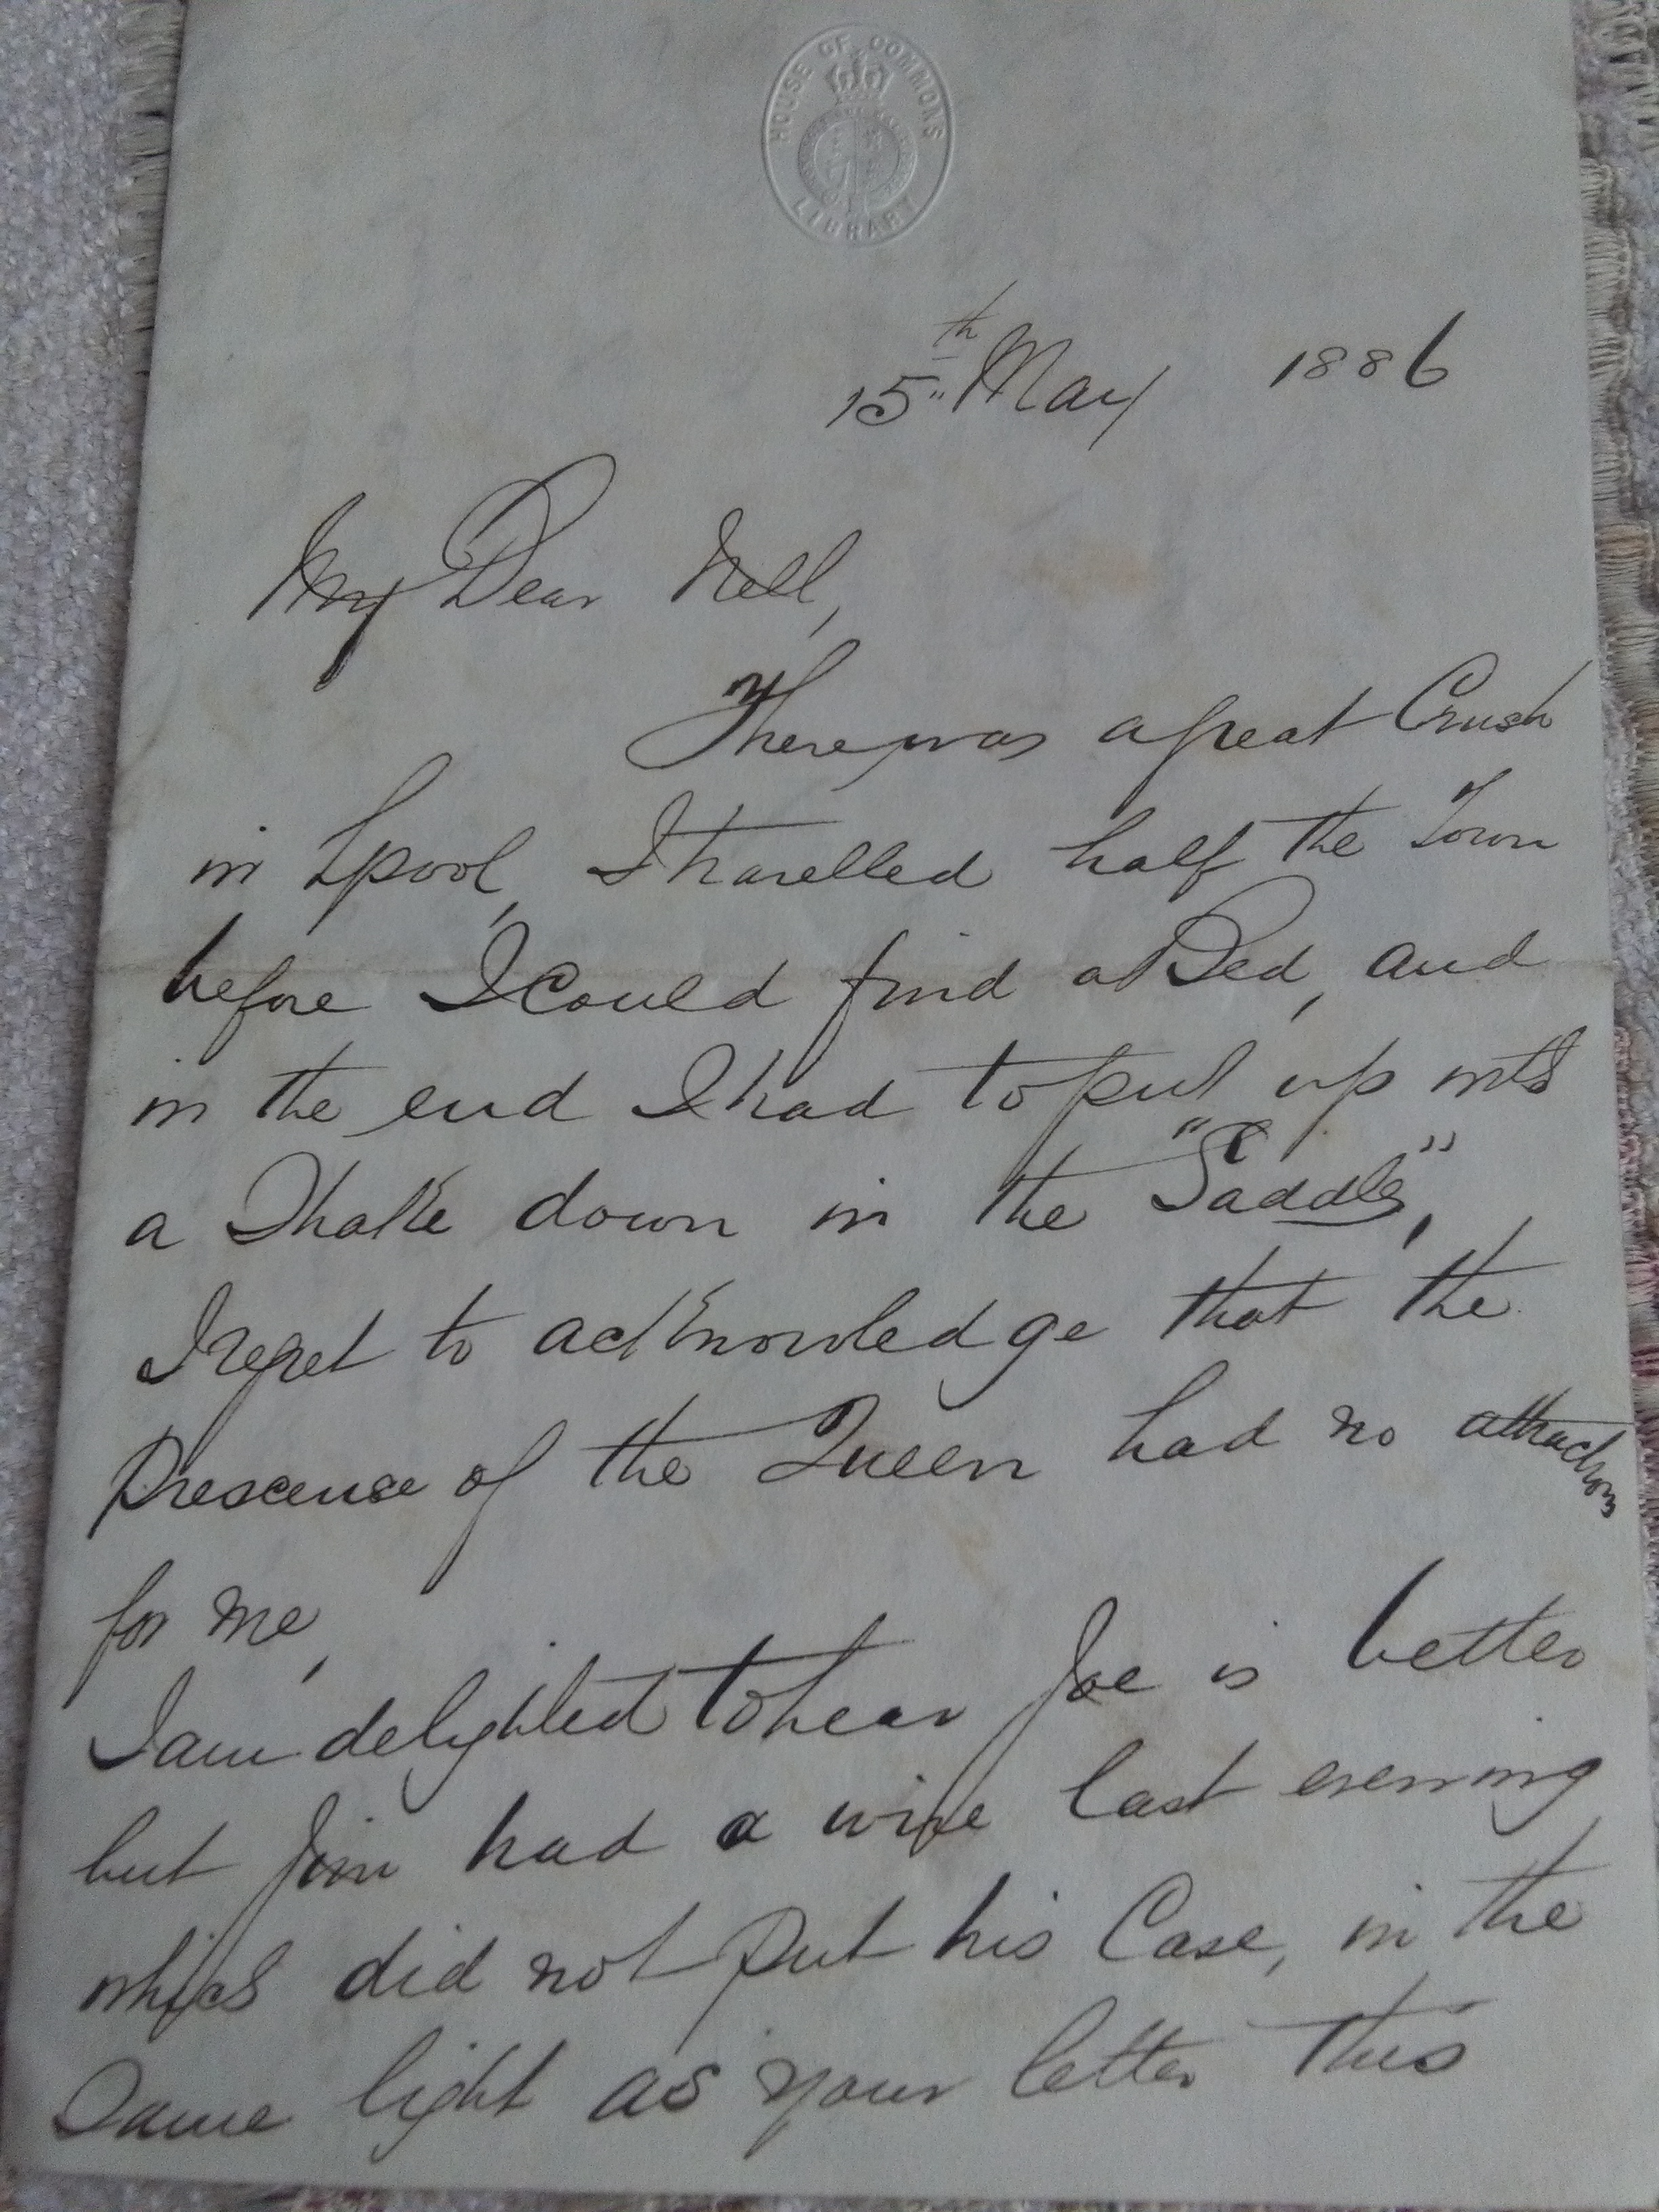 HOUSE OF COMMONS
LIBRARY
15th May 1886
My Dear Nell,
There was a great Crush
in Lpool, I travelled half the Town
before I Could find a Bed, and
in the end I had to put up with
a Shake down in the "Saddle",
I regret to acknowledge that the
Prescence of the Queen had no attractions
for me,
I am delighted to hear Joe is better
but Jim had a wire last evening
which did not put his Case, in the
Same light as your letter this